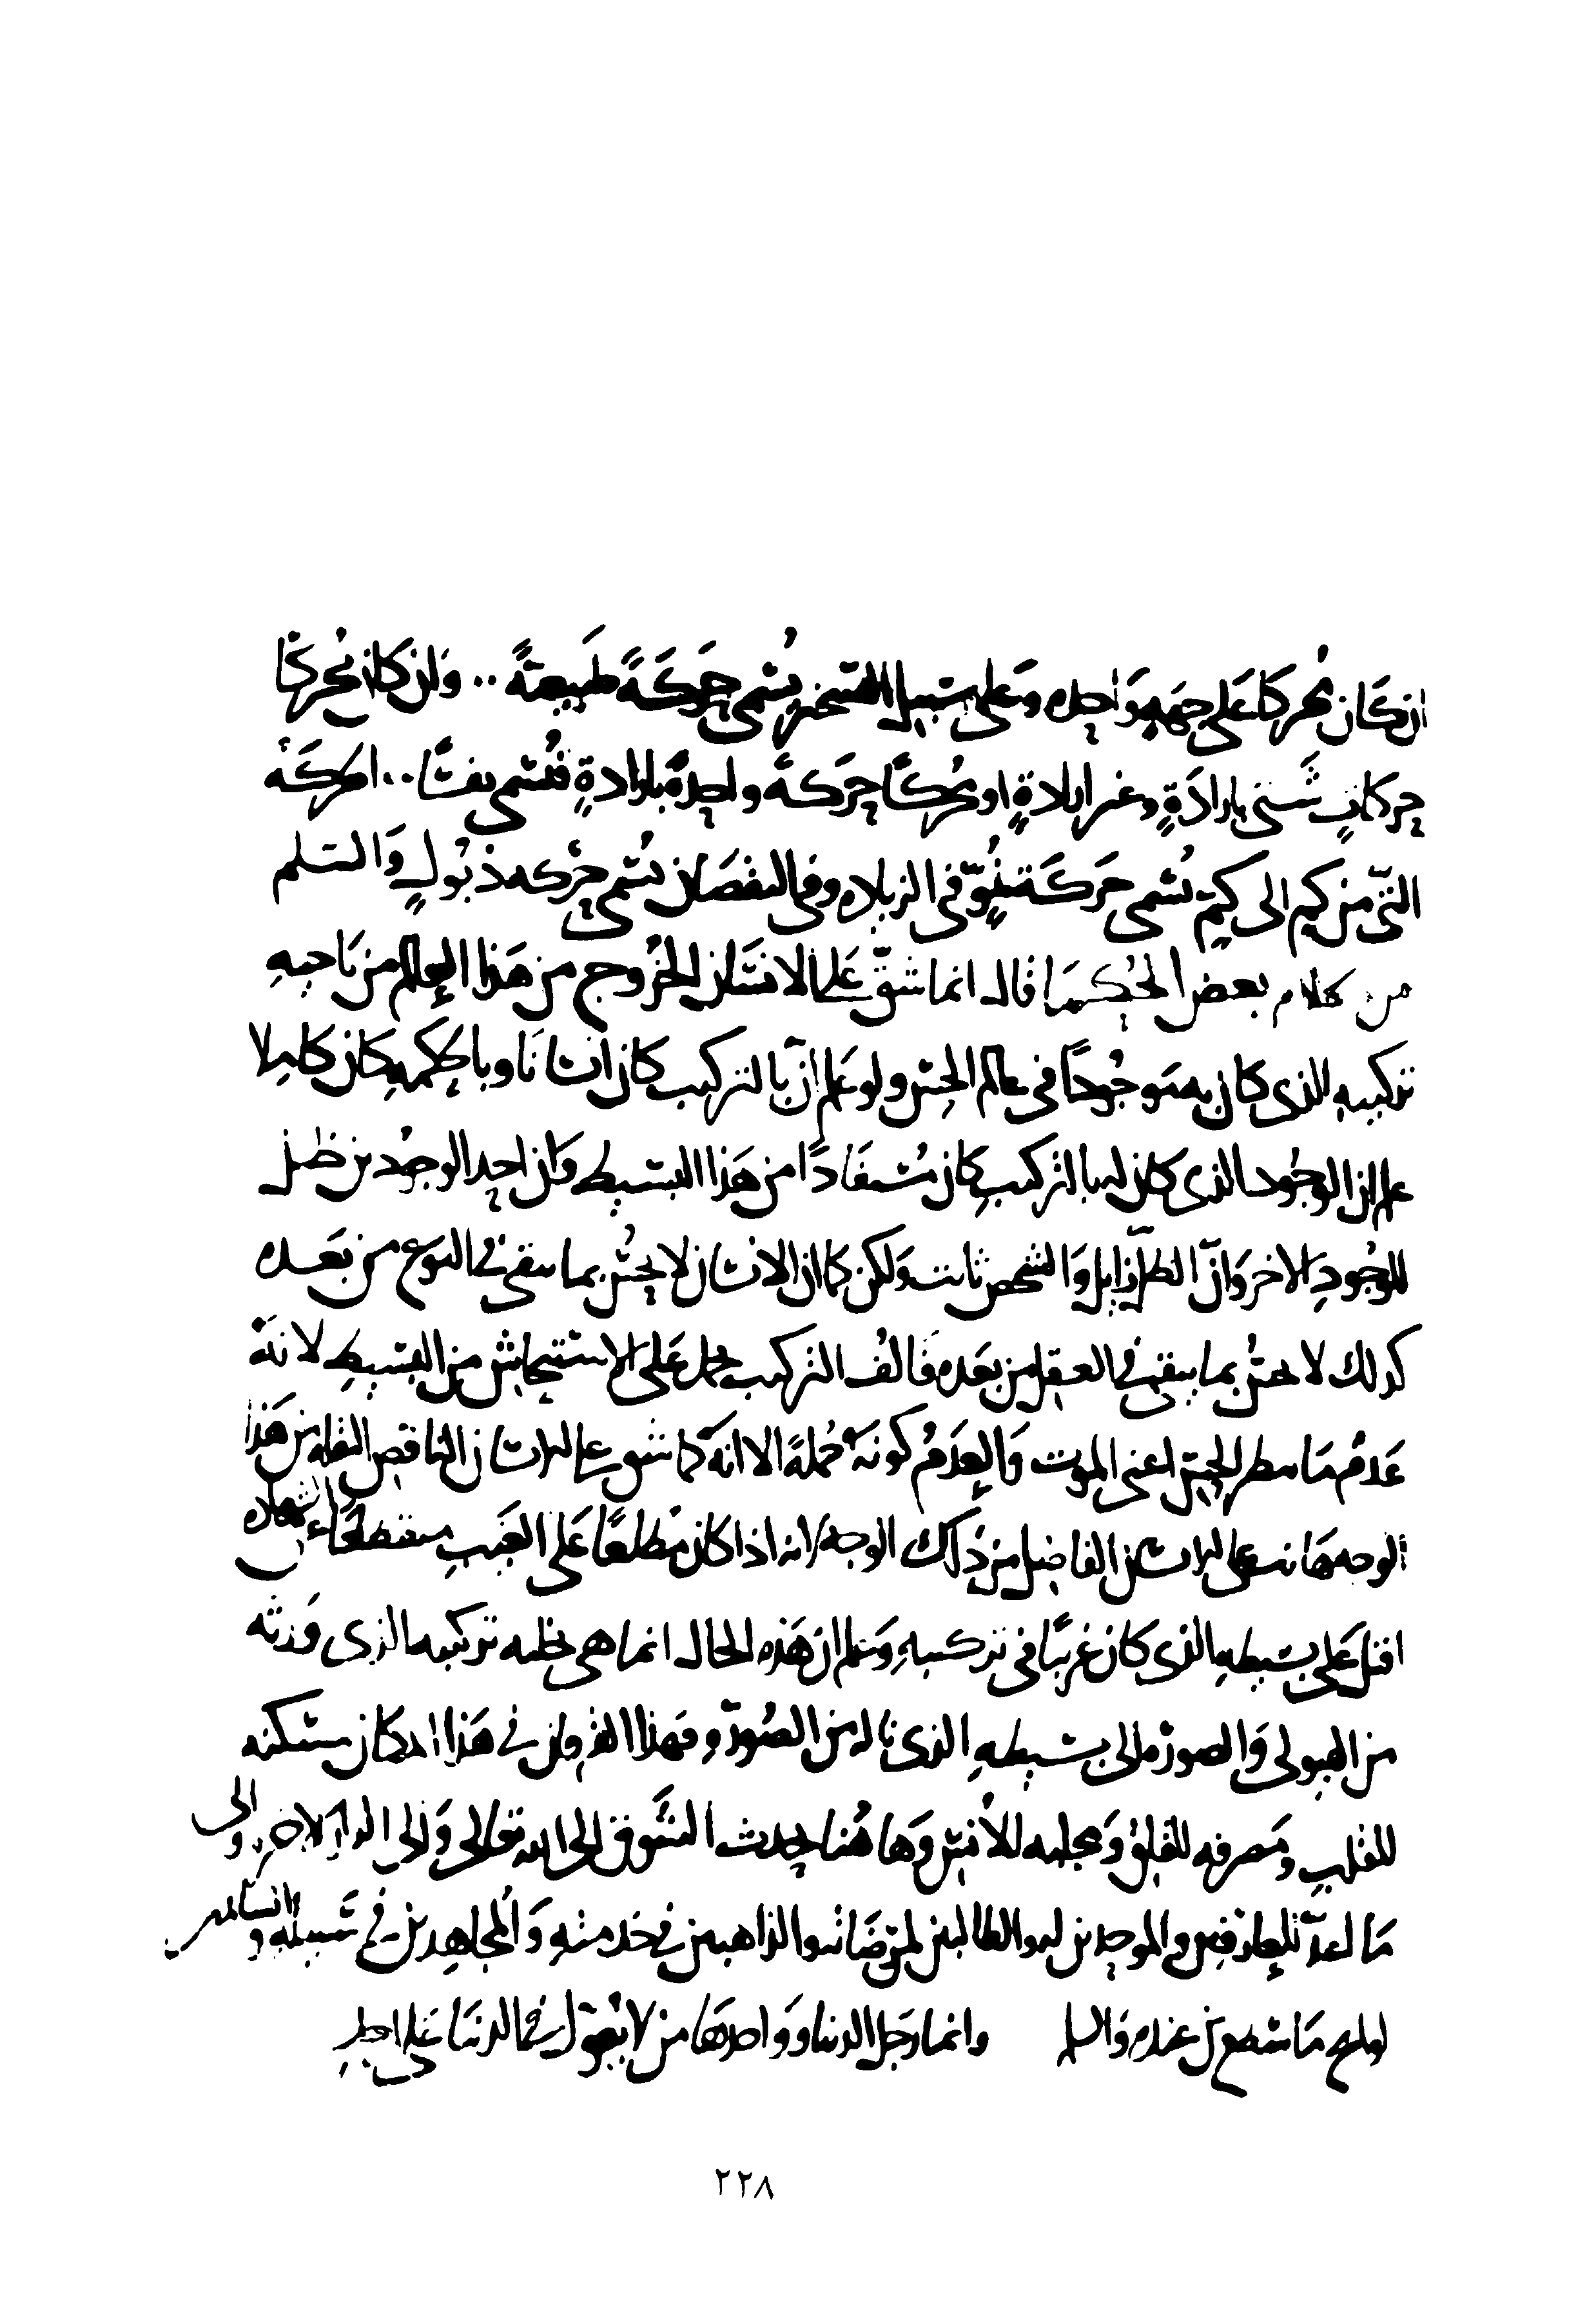 ان كان محركا على جهة واحده وعلى سبيل التسخير يُسمى حركةً طبيعةً .. وان كان محركا
حركات شتى بارادةٍ وغير ارادةٍ او محركًا حركةً واحدةً بارادةٍ فتسمى نفسًا .. الحركة
التى من كم الى كم تسمى حركة نُموّ فى الزياده وفى النقصان تسمى حركه ذبولٍ والسلم
من كلام بعض الحكما قال انما شقّ على الانسان الخروج من هذا العالم من ناحية
تركيبه الذى كان به موجودًا فى عالم الحس ولو علم انّ بالتركيب كان انسانا وبالحكمه كان كاملا
علم ان الوجود الذى كان له بالتركيب كان مُستفادًا من هذا البسيط وان احد الوجودين ظل
للوجود الاخر وانّ الظل زايل والشخص ثابت ولكن كما ان الانسان لا يحسّ بما يبقى فى النوع من بعده
كذلك لا يحسّ بما يبقى فى العقل من بعده فالف التركيب يحمل على الاستيحاش من البسيط لانه
عَدمُ ما الحس اعنى الموت والعدم كونه جملةً الا انه كما شق على الانسان الناقص من هذا
الوجه هانت على الانسان الفاضل من ذلك الوجه لانه اذا كان مطلعًا على الغيب الشهاده
اقبل على بسيطه الذى كان غريبًا فى تركيبه وعلم ان هذه الحال انما هى تركيبه الذى ورثه
من الهيولى والصورة الى بسيطه الذى ناله من الصورة وفهذا فى هذا كان
للقلب ومعرفه للأنس وهاهُنا يحدث الشوق الى الله تعالى والى الدار الاخره والى
ما اعدّ للعارفين والموحدين له والطالبين لمرضاته والذاهبين فى خدمته والمجاهدين فى سبيله
ما من عنده والسلم وانما رجل الدنيا وواحدها من لا يعوّل فى الدنيا على احد
٢٢٨